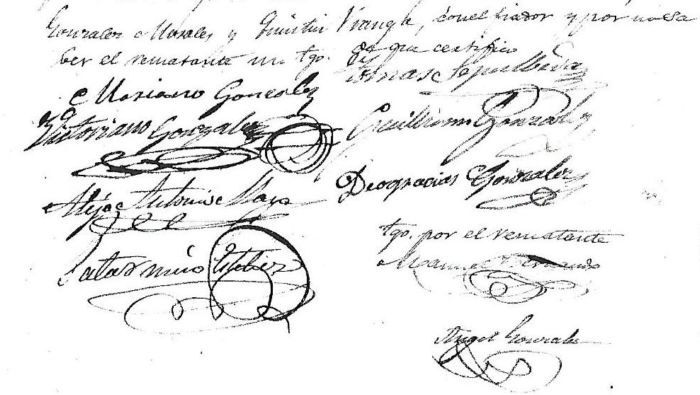 Gonzales Morales y Quintin Viangle, con el fiador y por no sa
ber el rematante un tgo. de que certifico
Tomas Sepulbeda
Mariano Gonzalez
Victoriano Gonzalez
Guillermo Gonzalez
Alejo Antonio Mayo
Deogracias Gonzalez
Saturnino Esteber
tgo. por el rematante
Manuel
Angel Gonzalez